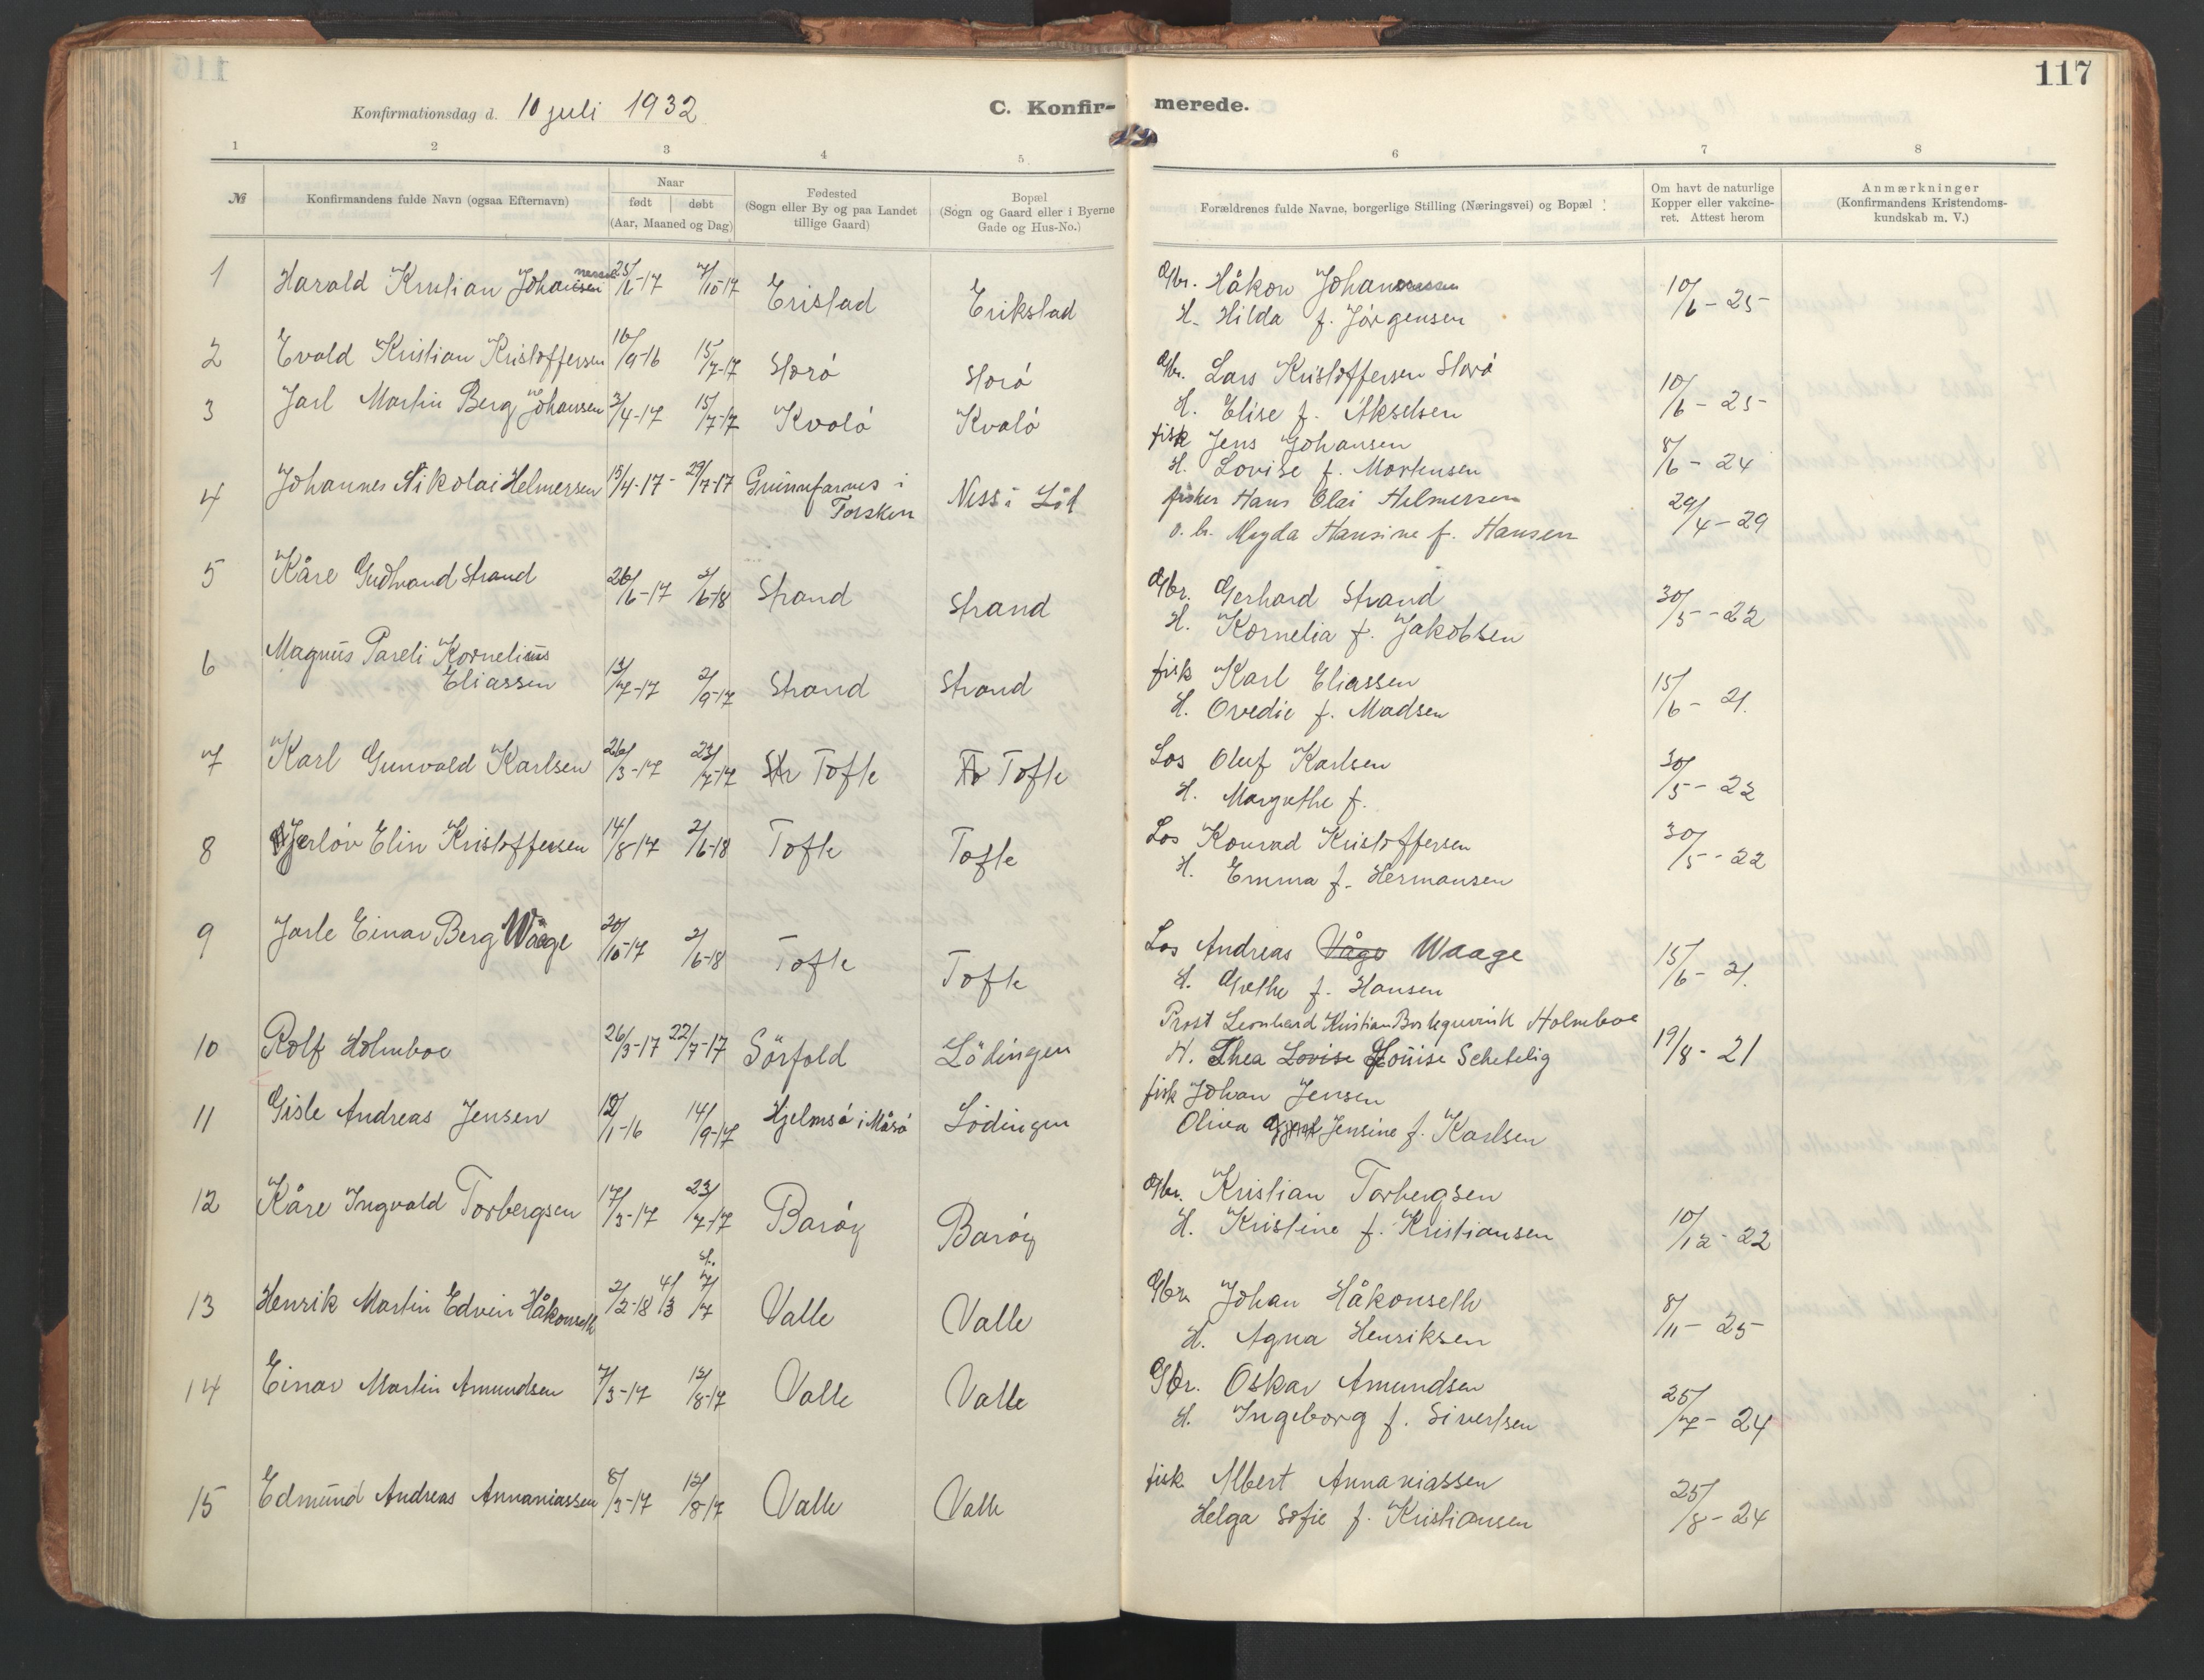 116
117
Konfirmationsdag d. 10 juli 1932
C. Konfir-
merede.
1 2 3 4 5 6 7 8
№
Konfirmandens fulde Navn (ogsaa Efternavn)
Naar
født | døbt
(Aar, Maaned og Dag)
Fødested
(Sogn eller By og paa Landet
tillige Gaard)
Bopæl
(Sogn og Gaard eller i Byerne
Gade og Hus-No.)
Forældrenes fulde Navne, borgerlige Stilling (Næringsvei) og Bopæl
Om havt de naturlige
Kopper eller vakcine-
ret. Attest herom
Anmærkninger
(Konfirmandens Kristendoms-
kundskab m. V.)
1 Harald Kristian Johannessen 25/6-17 7/10-17 Eristad Erikstad Gbr. Håkon Johannessen 10/6-25
H. Hilda f. Jørgensen
2 Evald Kristian Kristoffersen 16/9-16 15/7-17 Storó Storó Gbr. Lars Kristoffersen Storó 10/6-25
H. Elise f. Akselsen
3 Jarl Martin Berg Johansen 3/4-17 15/7-17 Kvaló Kvaló fisk Jens Johansen 8/6-24
H. Lovise f. Mortensen
4 Johannes Nikolai Helmersen 15/4-17 - 29/7-17 Grunnfarnes i Ness i Löd fisker Hans Olai Helmersen 29/4-29
Torsken o. h. Magda Hansine f. Hansen
5 Kåre Gudtvand Strand 26/6-17 2/6-18 Strand Strand Gbr. Gerhard Strand 30/5-22
H. Kornelia f. Jakobsen
6 Magnus Pareli Kornelius
Eliassen 13/7-17 2/9-17 Strand Strand fisk Karl Eliassen 15/6-21.
H. Ovedie f. Madsen
7 Karl Gunvald Karlsen 26/3-17 23/7-17 Tofte Tofte Los Oluf Karlsen 30/5-22
H. Margrethe f.
8 Hjerlóv Elin Kristoffersen 14/8-17 2/6-18 Tofte Tofte Los Konrad Kristoffersen 30/5-22
H. Emma f. Hermansen
9 Jarle Einar Berg Waage 20/10-17 2/6-18 Tofte Tofte Los Andreas Våge Waage 15/6-21.
H. Grethe f. Hansen
10 Rolf Holmboe 26/3-17 22/7-17 Sörfold Lödingen Prost Leonhard Kristian Borchgrevink Holmboe 19/8-21
H. Thea Lovise Louise Schetelig
11 Gisle Andreas Jensen 12/1-16 14/9-17 Hjelmsó i Måsó Lödingen fisk Johan Jensen
Oliva Jensine f. Karlsen
12 Kåre Ingvald Torbergsen 17/3-17 23/7-17 Baróy Baróy Gbr. Kristian Torbergsen 10/12-22
H. Kristine f. Kristiansen
13 Henrik Martin Edvin Håkonseth 2/2-18 4/3 st. 7/7 Valle Valle Gbr. Johan Håkonseth 8/11-25
H. Agna Henriksen
14 Einar Martin Amundsen 7/3-17 12/8-17 Valle Valle Gbr. Oskar Amundsen 25/7-24
H. Ingeborg f. Sivertsen
15 Edmund Andreas Annaniassen 8/3-17 12/8-17 Valle Valle fisk Albert Annaniassen 25/8-24
Helga Sofie f. Kristiansen